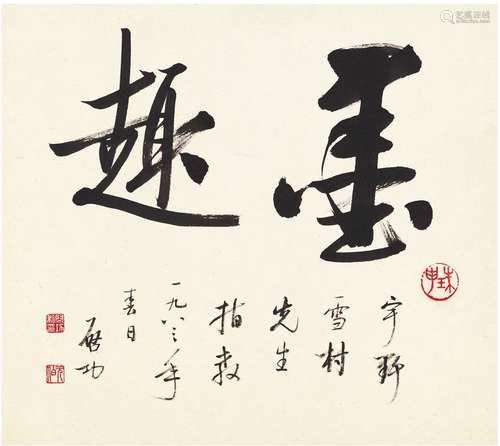 墨趣
宇野
雪村
先生
指教
一九八三年
春日
启功
珠申